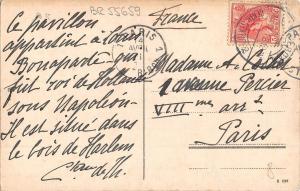 BR 55659
France
Ce pavillon
appartint à Louis
Bonaparte qui
fut roi de Hollande
sous Napoléon.
Il est situé dans
le bois de Harlem
de
Madame A.
1 avenue Percier
VIII me arrt
Paris